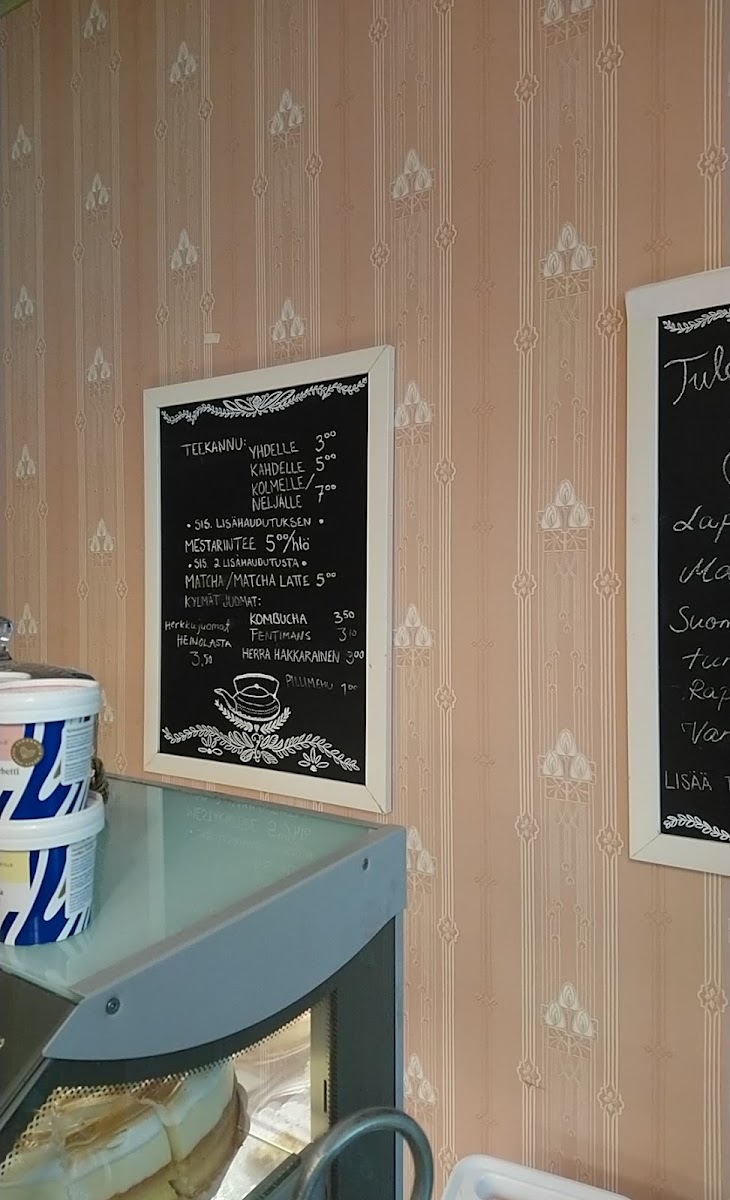 TEEKANNU: YHDELLE 3⁰⁰
KAHDELLE 5⁰⁰
KOLMELLE/
NELJÄLLE 7⁰⁰
• SIS. LISÄHAUDUTUKSEN •
MESTARINTEE 5⁰⁰/hlö
• SIS. 2 LISÄHAUDUTUSTA •
MATCHA/MATCHA LATTE 5⁰⁰
KYLMÄT JUOMAT:
Herkkujuomat
HEINOLASTA
3,50
KOMBUCHA 3,50
FENTIMANS 3,10
HERRA HAKKARAINEN 3⁰⁰
PILLIMEHU 1⁰⁰
Tul
Lap
Ma
Suom
tur
Rap
Var
LISÄÄ